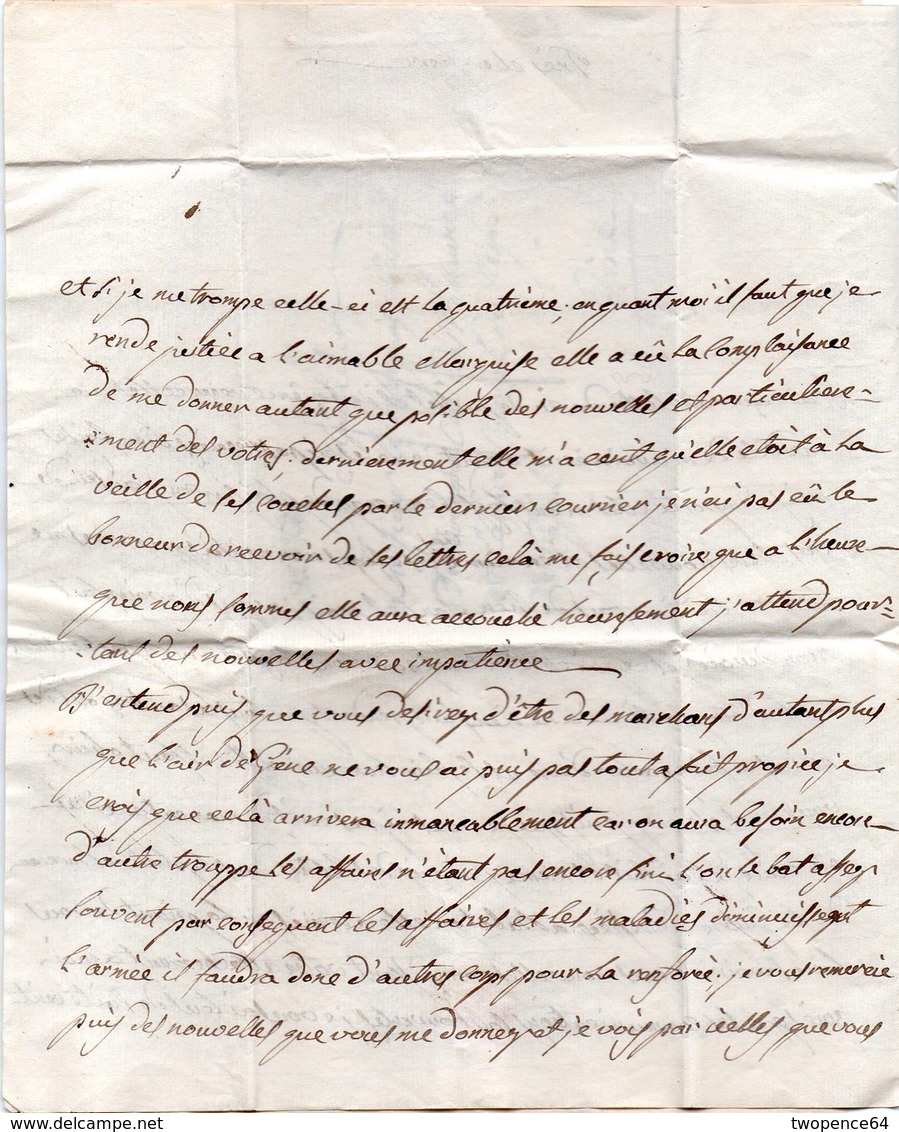 et si je me trompe celle-ci est la quatrieme, en quant moi il faut que je
rende justice a l'aimable Marquise elle a eû la complaisance
de me donner autant que posible des nouvelles et particuliere-
ment des votres, dernierement elle m'a ecrit qu'elle etoit à la
veille de ses couches par le dernier courrier je n'ai pas eû le
bonneur de recevoir de ses lettres celà me fais croire que a l'heure
que nous sommes elle aura accouché heursement j'attend pour=
:tant des nouvelles avec impatience
J'entend puis que vous desirez d'être des marchans d'autant plus
que l'air de Gêne ne vous ai puis pas tout a fait propice je
crois que celà arrivera inmancablement car on aura besoin encore
d'autre trouppe les affaires n'étant pas encore fini l'on se bat assez
souvent par consequent les affaires et les maladies diminuissent
l'armée il faudra donc d'autres corps pour la renforcé; je vous remercie
puis des nouvelles que vous me donnez et je vois par cielles que vous
www.delcampe.net
twopence64